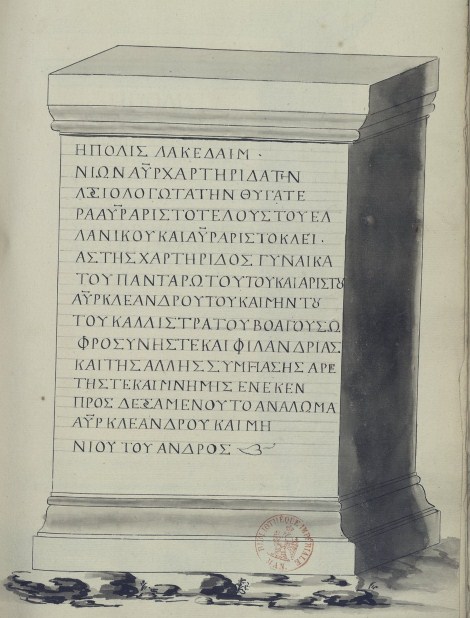 ΗΠΟΛΙΣ ΛΑΚΕΔΑΙΜ ·
ΝΙΩΝ ΑΥΡ ΧΑΡΤΗΡΙΔΑ ΤΗΝ
ΑΞΙΟΛΟΓΩΤΑΤΗΝ ΘΥΓΑΤΕ
ΡΑ ΑΥΡ ΑΡΙΣΤΟΤΕΛΟΥΣ ΤΟΥ ΕΛ
ΛΑΝΙΚΟΥ ΚΑΙ ΑΥΡ ΑΡΙΣΤΟΚΛΕΙ ·
ΑΣ ΤΗΣ ΧΑΡΤΗΡΙΔΟΣ ΓΥΝΑΙΚΑ
ΤΟΥ ΠΑΝΤΑΡΩΤΟΥ ΤΟΥ ΚΑΙ ΑΡΙΣΤȢ
ΑΥΡ ΚΛΕΑΝΔΡΟΥ ΤΟΥ ΚΑΙ ΜΗΝΤȢ
ΤΟΥ ΚΑΛΛΙΣΤΡΑΤΟΥ ΒΟΑΓΟΥ ΣΩ
ΦΡΟΣΥΝΗΣ ΤΕ ΚΑΙ ΦΙΛΑΝΔΡΙΑΣ
ΚΑΙ ΤΗΣ ΑΛΛΗΣ ΣΥΜΠΑΣΗΣ ΑΡΕ
ΤΗΣ ΤΕ ΚΑΙ ΜΝΗΜΙΣ ΕΝΕΚΕΝ
ΠΡΟΣ ΔΕΞΑΜΕΝΟΥ ΤΟ ΑΝΑΛΩΜΑ
ΑΥΡ ΚΛΕΑΝΔΡΟΥ ΚΑΙ ΜΗ
ΝΙΟΥ ΤΟΥ ΑΝΔΡΟΣ
BIBLIOTHEQUE IMPERIALE MAN.